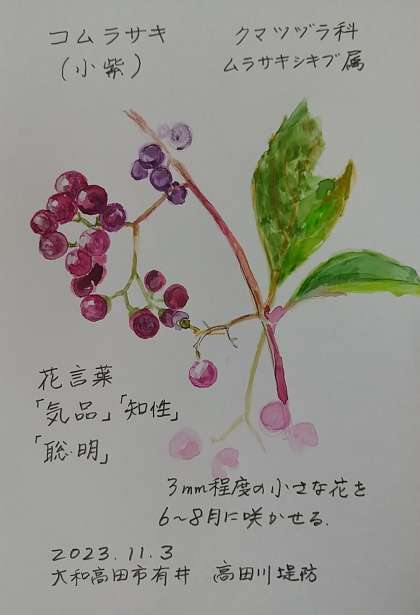 コムラサキ
(小紫)
クマツヅラ科
ムラサキシキブ属
花言葉
「気品」「知性」
「聡明」
3mm程度の小さな花を
6〜8月に咲かせる.
2023.11.3
大和高田市有井 高田川堤防